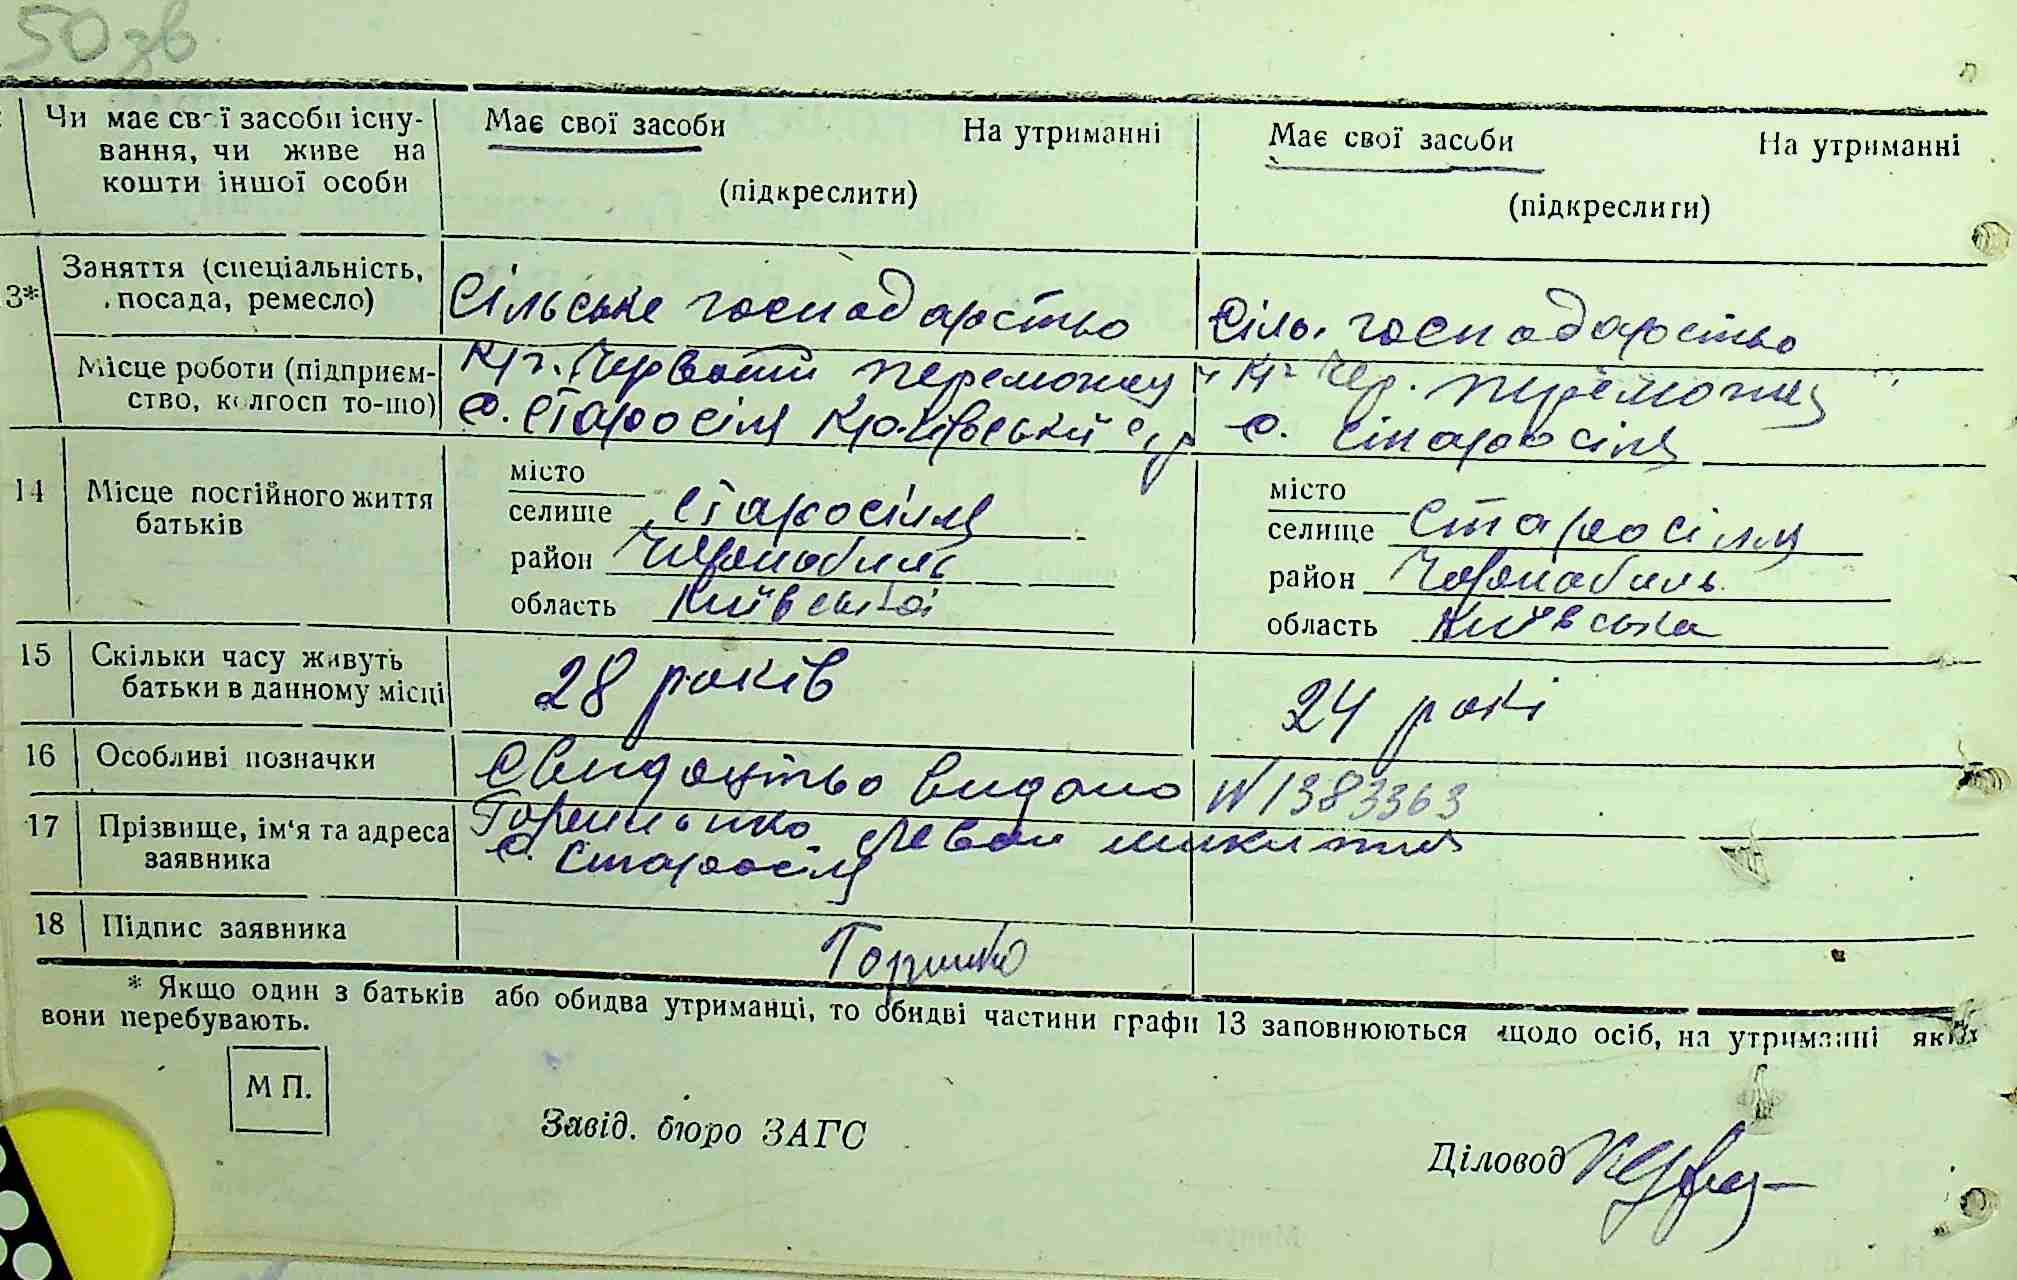 50 зв
Чи має свої засоби існу- Має свої засоби На утриманні Має свої засоби На утриманні
вання, чи живе на
кошти іншої особи (підкреслити) (підкреслити)
3* Заняття (спеціальність, посада, ремесло) Сільське господарство Сіль. господарство
Місце роботи (підприєм- переможець Чер. переможець
ство, колгосп то-що) с. Старосілля с. Старосілля
14 Місце постійного життя
батьків
місто місто
селище Старосілля селище Старосілля
район Чорнобиль район Чорнобиль
область Київської область Київська
15 Скільки часу живуть
батьки в данному місці 28 років 24 рокі
16 Особливі позначки Свидоцтво видано N 1383363
17 Прізвище, ім'я та адреса
заявника с. Старосілля
18 Підпис заявника
* Якщо один з батьків або обидва утриманці, то обидві частини графи 13 заповнюються щодо осіб, на утриманні яких
вони перебувають.
М П.
Завід. бюро ЗАГС
Діловод